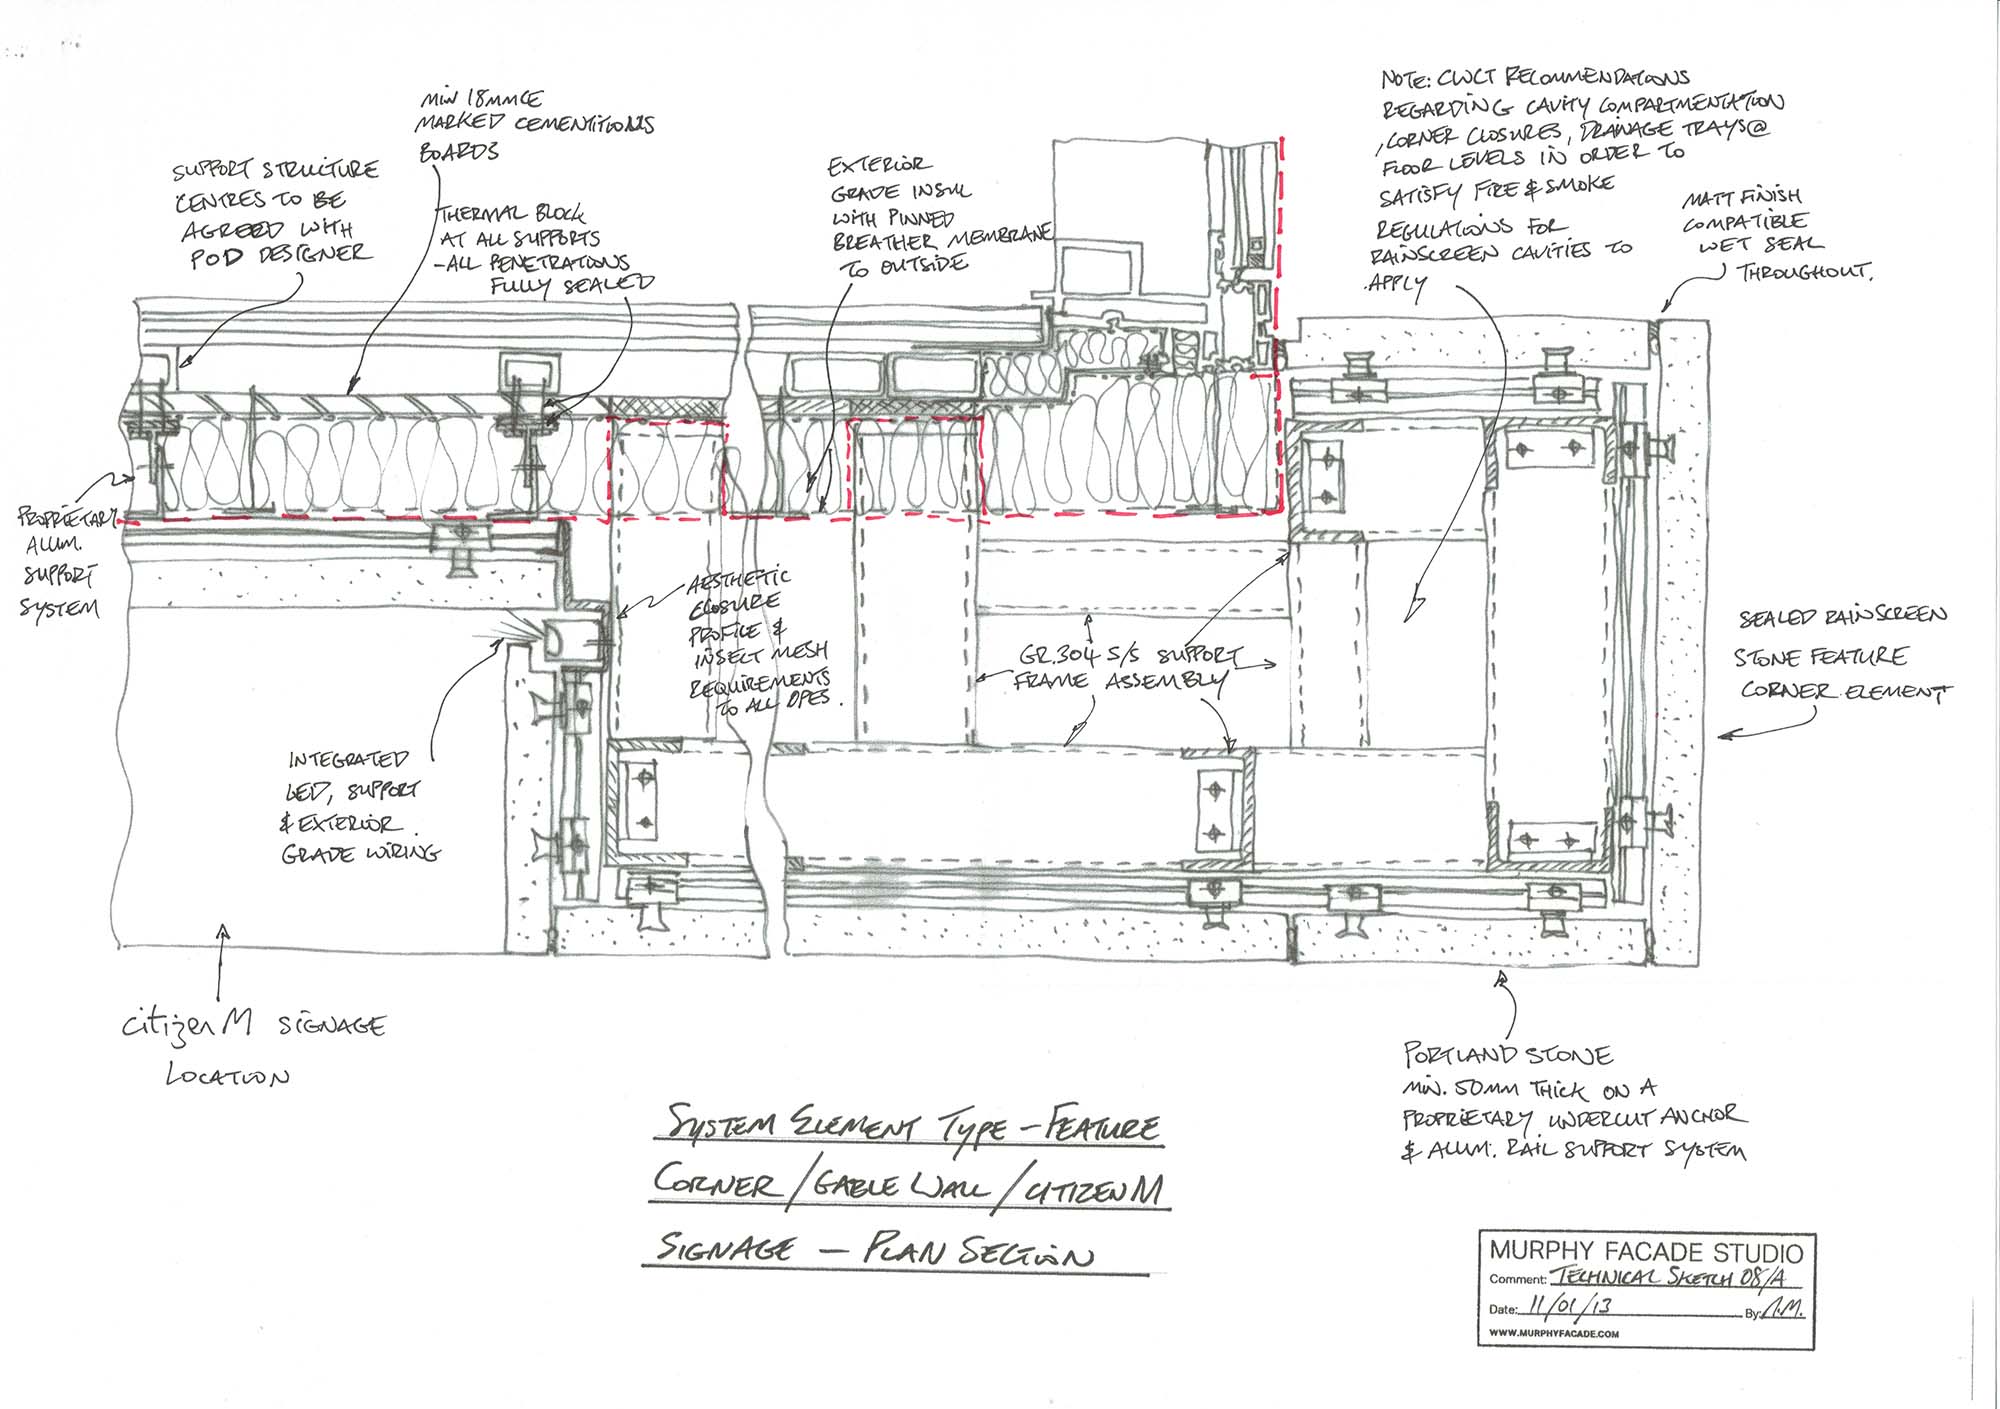 SUPPORT STRUCTURE
CENTRES TO BE
AGREED WITH
POD DESIGNER
MIN 18MM CE
MARKED CEMENTITIOUS
BOARDS
THERMAL BLOCK
AT ALL SUPPORTS
-ALL PENETRATIONS
FULLY SEALED
EXTERIOR
GRADE INSUL
WITH PINNED
BREATHER MEMBRANE
TO OUTSIDE
NOTE: CWCT RECOMMENDATIONS
REGARDING CAVITY COMPARTMENTATION
, CORNER CLOSURES, DRAINAGE TRAYS @
FLOOR LEVELS IN ORDER TO
SATISFY FIRE & SMOKE
REGULATIONS FOR
RAINSCREEN CAVITIES TO
APPLY
MATT FINISH
COMPATIBLE
WET SEAL
THROUGHOUT.
PROPRIETARY
ALUM.
SUPPORT
SYSTEM
AESTHETIC
CLOSURE
PROFILE &
INSECT MESH
REQUIREMENTS
TO ALL OPES.
GR.304 S/S SUPPORT
FRAME ASSEMBLY
SEALED RAINSCREEN
STONE FEATURE
CORNER ELEMENT
INTEGRATED
LED, SUPPORT
& EXTERIOR
GRADE WIRING
citizenM SIGNAGE
LOCATION
PORTLAND STONE
MIN. 50MM THICK ON A
PROPRIETARY UNDERCUT ANCHOR
& ALUM. RAIL SUPPORT SYSTEM
SYSTEM ELEMENT TYPE - FEATURE
CORNER / GABLE WALL / CITIZENM
SIGNAGE - PLAN SECTION
MURPHY FACADE STUDIO
Comment: TECHNICAL SKETCH 08/A
Date: 11/01/13 By: A.M.
WWW.MURPHYFACADE.COM